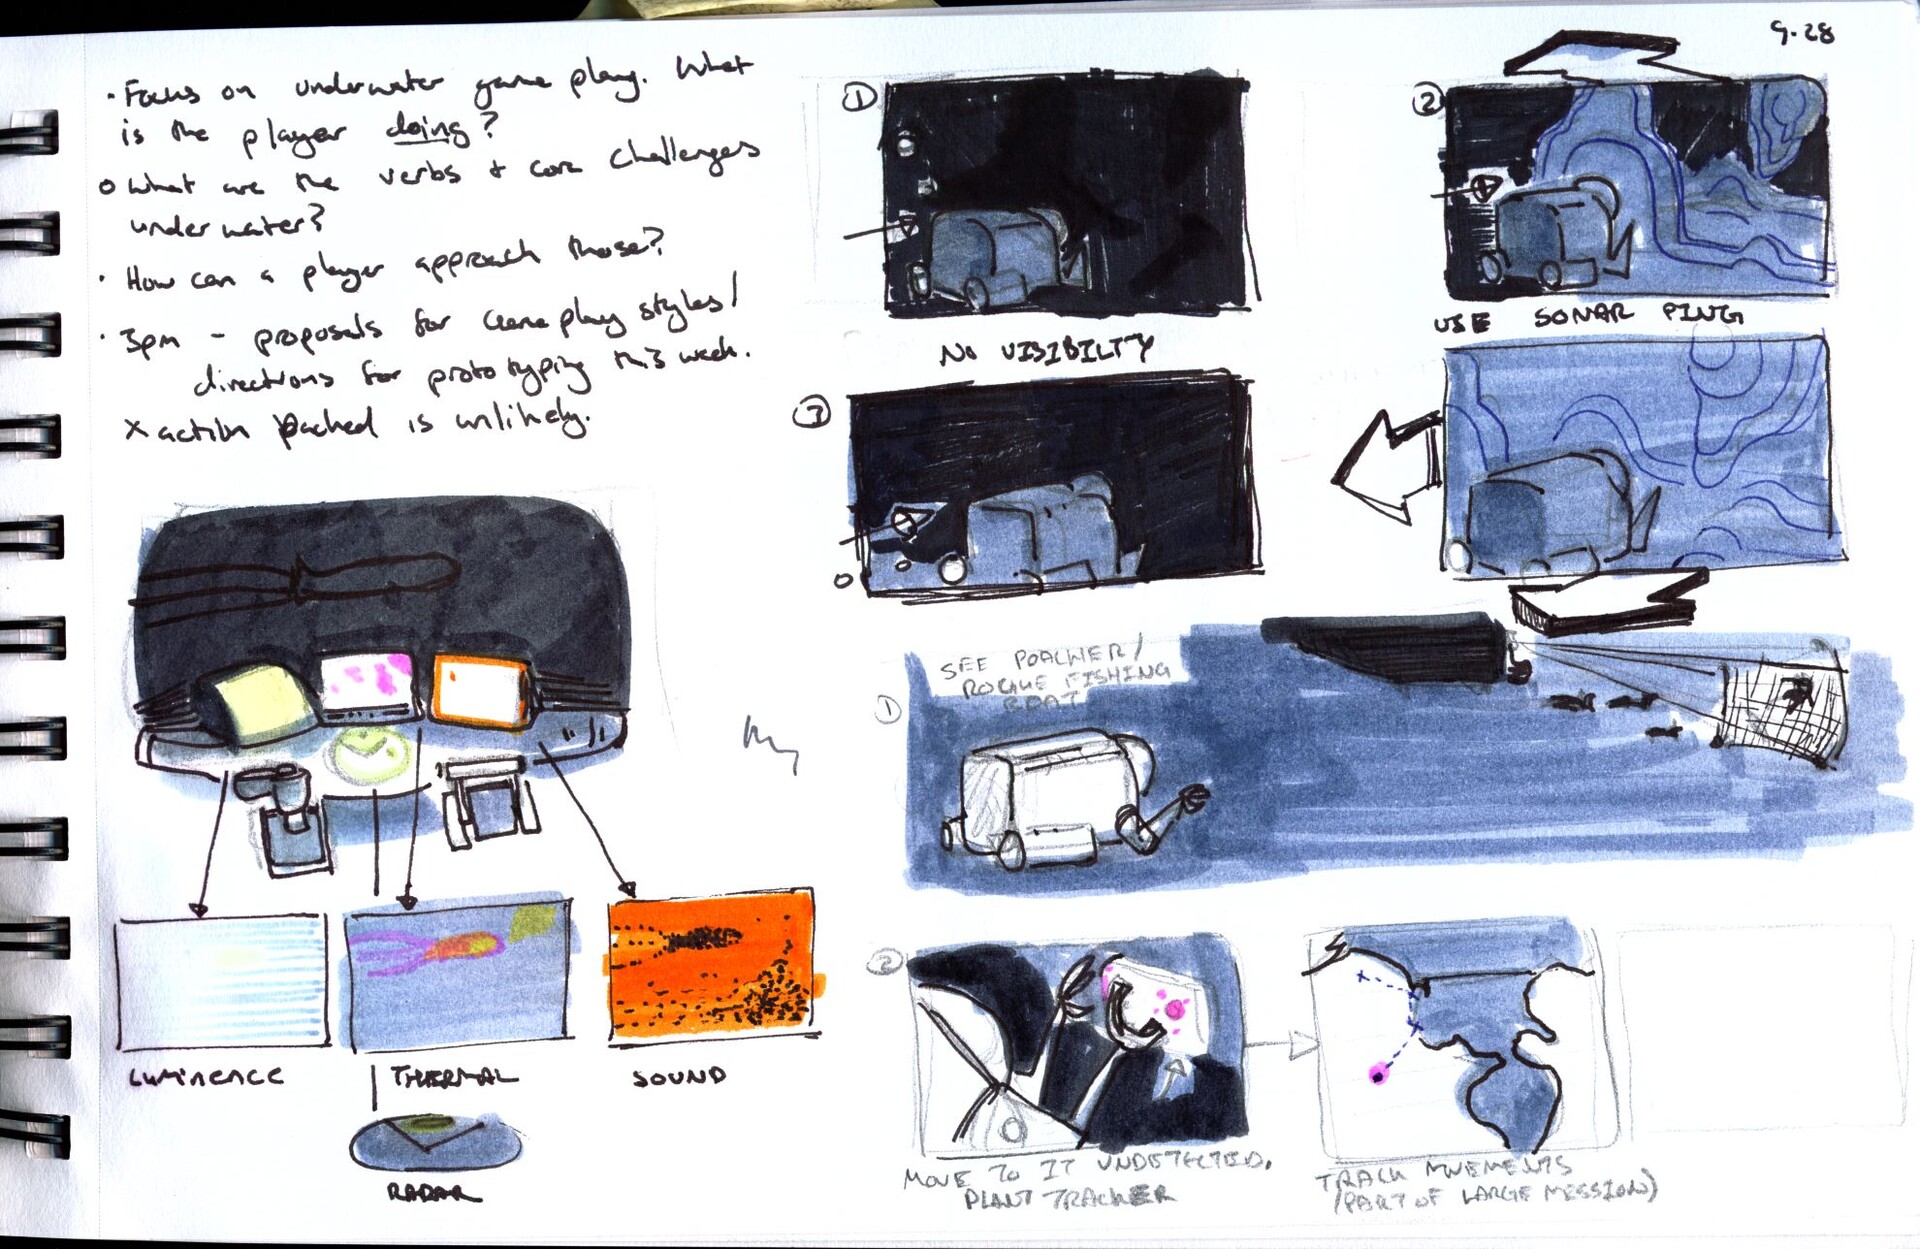 9.28
• Focus on underwater game play. What
is the player doing?
o What are the verbs + core challenges
underwater?
• How can a player approach those?
• 3pm - proposals for Gameplay styles/
directions for prototyping this week.
x action packed is unlikely.
①
NO VISIBILTY
②
USE SONAR PING
③
LUMINENCE
THERMAL
SOUND
RADAR
①
SEE POACHER/
ROGUE FISHING
BOAT
②
MOVE TO IT UNDETECTED,
PLANT TRACKER
TRACK MVEMENTS
(PART OF LARGE MESSION)